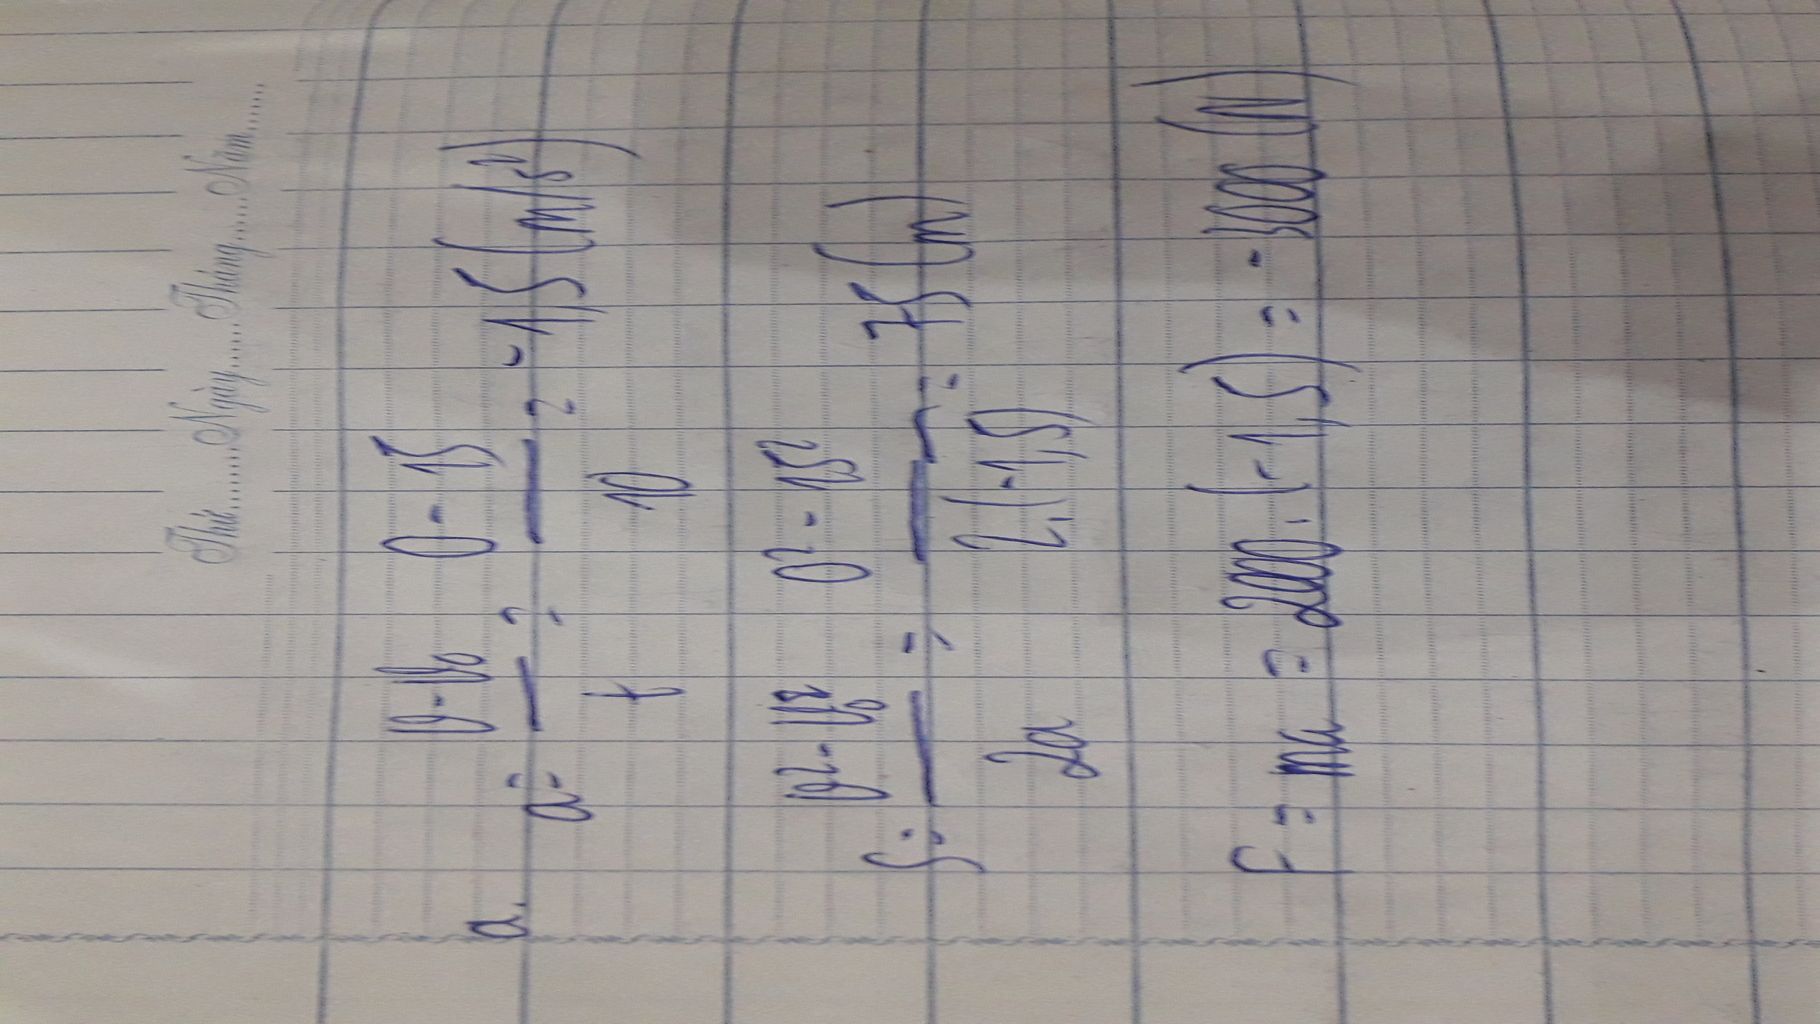 Thứ.........Ngày.......Tháng.......Năm.......
a. a = (v - v₀)/t = (0 - 15)/10 = -1,5 (m/s²)
S = (v² - v₀²)/2a = (0² - 15²)/2.(-1,5) = 75 (m)
F = ma = 2000.(-1,5) = -3000 (N)